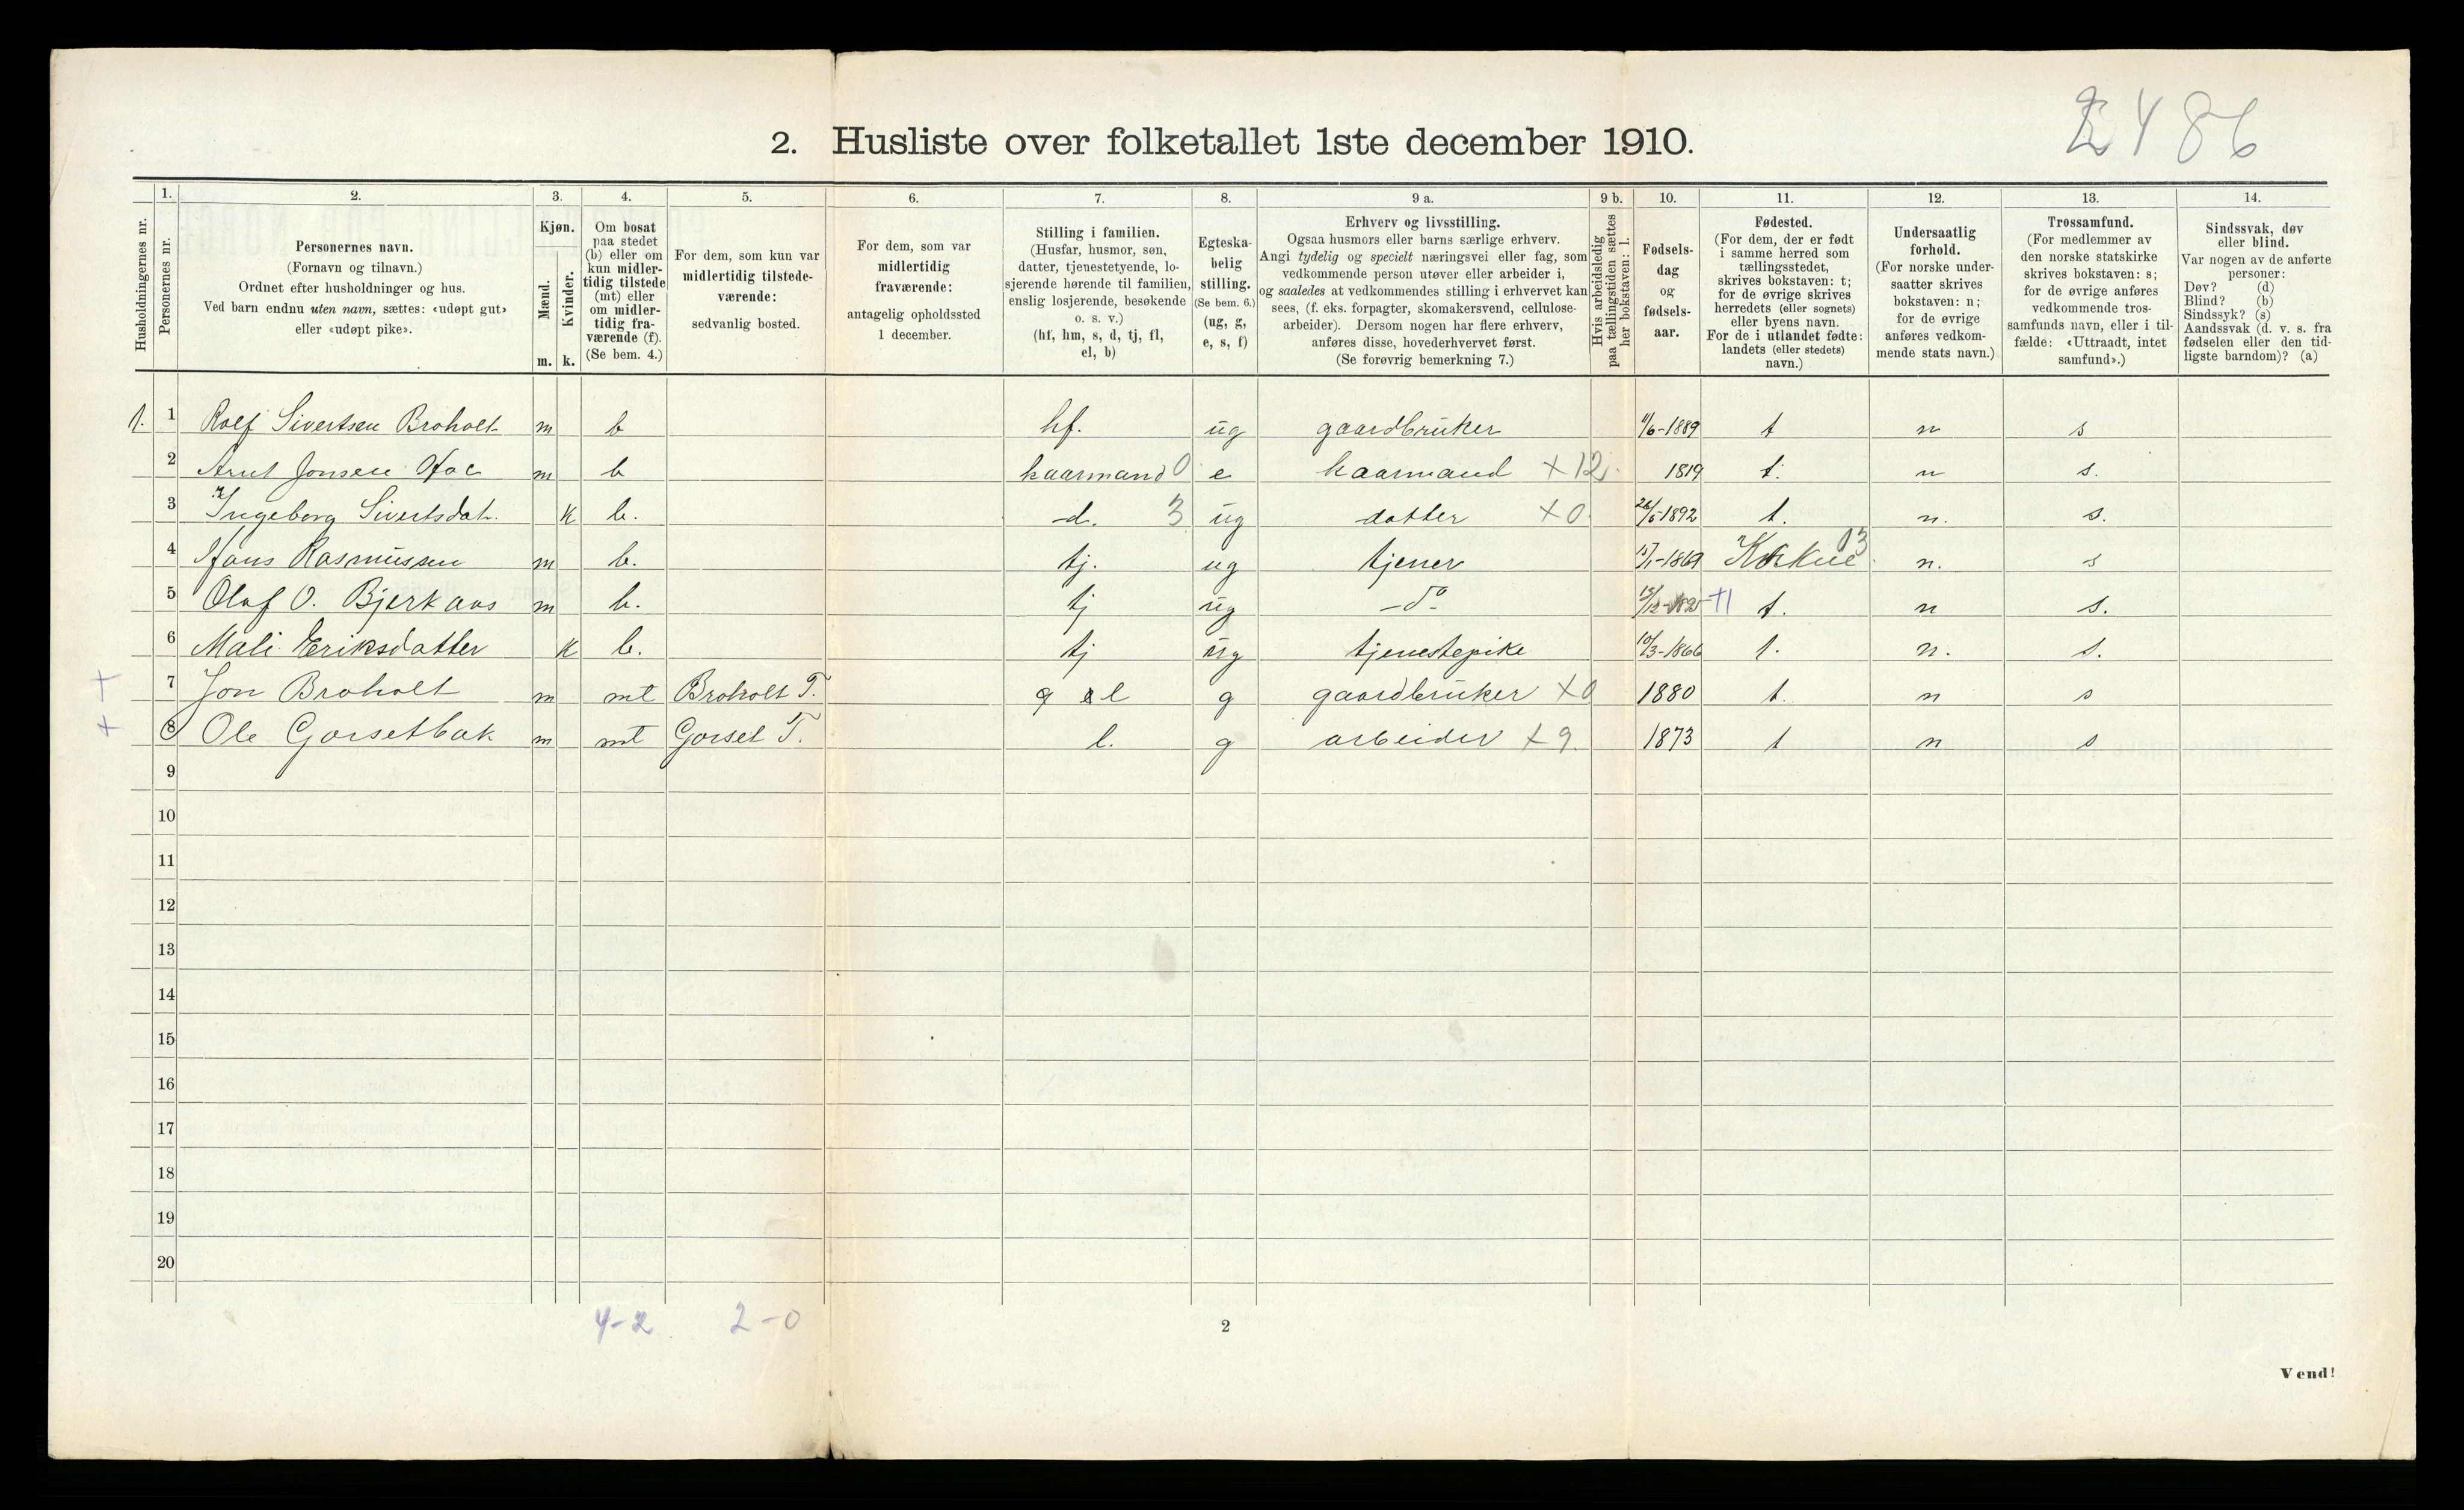 2486
2. Husliste over folketallet 1ste december 1910.
1. 2. 3. 4. 5. 6. 7. 8. 9 a. 9 b. 10. 11. 12. 13. 14.
Husholdningernes nr.
Personernes nr.
Personernes navn.
(Fornavn og tilnavn.)
Ordnet efter husholdninger og hus.
Ved barn endnu uten navn, sættes: «udøpt gut»
eller «udøpt pike».
Kjøn.
Mænd.
Kvinder.
m. k.
Om bosat
paa stedet
(b) eller om
kun midler-
tidig tilstede
(mt) eller
om midler-
tidig fra-
værende (f).
(Se bem. 4.)
For dem, som kun var
midlertidig tilstede-
værende:
sedvanlig bosted.
For dem, som var
midlertidig
fraværende:
antagelig opholdssted
1 december.
Stilling i familien.
(Husfar, husmor, søn,
datter, tjenestetyende, lo-
sjerende hørende til familien,
enslig losjerende, besøkende
o. s. v.)
(hf, hm, s, d, tj, fl,
el, b)
Egteska-
belig
stilling.
(Se bem. 6.)
(ug, g,
e, s, f)
Erhverv og livsstilling.
Ogsaa husmors eller barns særlige erhverv.
Angi tydelig og specielt næringsvei eller fag, som
vedkommende person utøver eller arbeider i,
og saaledes at vedkommendes stilling i erhvervet kan
sees, (f. eks. forpagter, skomakersvend, cellulose-
arbeider). Dersom nogen har flere erhverv,
anføres disse, hovederhvervet først.
(Se forøvrig bemerkning 7.)
Hvis arbeidsledig
paa tællingstiden sættes
her bokstaven: l.
Fødsels-
dag
og
fødsels-
aar.
Fødested.
(For dem, der er født
i samme herred som
tællingsstedet,
skrives bokstaven: t;
for de øvrige skrives
herredets (eller sognets)
eller byens navn.
For de i utlandet fødte:
landets (eller stedets)
navn.)
Undersaatlig
forhold.
(For norske under-
saatter skrives
bokstaven: n;
for de øvrige
anføres vedkom-
mende stats navn.)
Trossamfund.
(For medlemmer av
den norske statskirke
skrives bokstaven: s;
for de øvrige anføres
vedkommende tros-
samfunds navn, eller i til-
fælde: «Uttraadt, intet
samfund».)
Sindssvak, døv
eller blind.
Var nogen av de anførte
personer:
Døv? (d)
Blind? (b)
Sindssyk? (s)
Aandssvak (d. v. s. fra
fødselen eller den tid-
ligste barndom)? (a)
1. 1 Rolf Sivertsen Broholt m b hf. ug gaardbruker 11/6-1889 t n s
2 Arnt Jonsen m b kaarmand 0 e kaarmand +12 1819 t. n s.
3 Ingeborg Sivertsdat. k b. d. 3 ug datter +0 26/5-1892 t. n. s.
4 Hans Rasmussen m b. tj. ug tjener /1-1869 13 n. s
5 Olaf O. Bjerkaas m b. tj ug -do- t. n s.
6 Mali Eriksdatter k b. tj ug tjenestepike 10/3-1866 t. n. s.
+ 7 Jon Broholt m mt Broholt T. l g gaardbruker +0 1880 t. n s
+ 8 Ole Gorsetbak m mt Gorset T. l. g arbeider +9 1873 t n s
9
10
11
12
13
14
15
16
17
18
19
20
4-2 2-0
2
Vend!